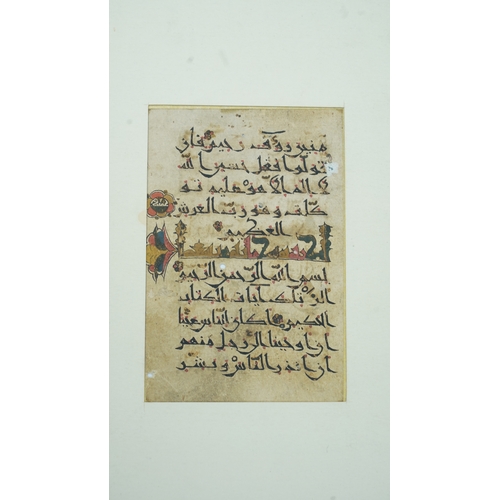 منين رؤف رحيم فان
تولوا فقل حسبي الله
لا اله الا هو عليه تو
كلت وهو رب العرش
العظيم
بسم الله الرحمن الرحيم
الر تلك ايات الكتاب
الحكيم اكان للناس عجبا
ان اوحينا الى رجل منهم
ان انذر الناس وبشر